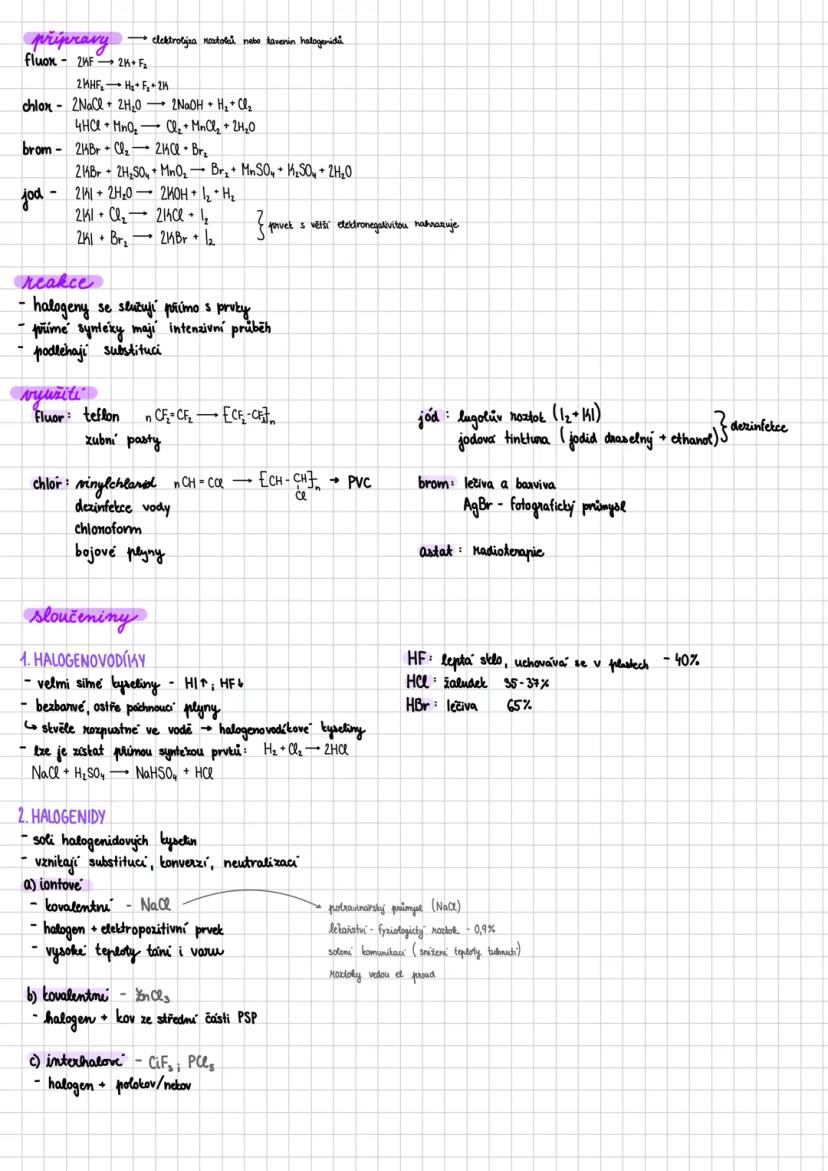 přípravy → elektrolýza roztoků nebo tavenin halogenidů
fluor - 2KF → 2K + F₂
2KHF₂ → H₂ + F₂ + 2K
chlor - 2NaCl + 2H₂O → 2NaOH + H₂ + Cl₂
4HCl + MnO₂ → Cl₂ + MnCl₂ + 2H₂O
brom - 2KBr + Cl₂ → 2KCl + Br₂
2KBr + 2H₂SO₄ + MnO₂ → Br₂ + MnSO₄ + K₂SO₄ + 2H₂O
jod - 2KI + 2H₂O → 2KOH + I₂ + H₂
2KI + Cl₂ → 2KCl + I₂
2KI + Br₂ → 2KBr + I₂
} prvek s větší elektronegativitou nahrazuje
reakce
- halogeny se slučují přímo s prvky
- přímé syntézy mají intenzivní průběh
- podléhají substituci
využití
fluor: teflon n CF₂=CF₂ → [CF₂-CF₂]ₙ
zubní pasty
chlór: vinylchlorid n CH = CCl → [CH - CH]ₙ → PVC
Cl
dezinfekce vody
chloroform
bojové plyny
jód: lugolův roztok (I₂ + KI)
jodová tinktura (jodid draselný + ethanol) } dezinfekce
brom: léčiva a barviva
AgBr - fotografický průmysl
astat: radioterapie
sloučeniny
1. HALOGENOVODÍKY
- velmi silné kyseliny - HI↑; HF↓
- bezbarvé, ostře páchnoucí plyny
↳ skvěle rozpustné ve vodě → halogenovodíkové kyseliny
- lze je získat přímou syntézou prvků: H₂ + Cl₂ → 2HCl
NaCl + H₂SO₄ → NaHSO₄ + HCl
HF: leptá sklo, uchovává se v plastech - 40%
HCl: žaludek 35-37%
HBr: léčiva 65%
2. HALOGENIDY
- soli halogenidových kyselin
- vznikají substitucí, konverzí, neutralizací
a) iontové
- kovalentní - NaCl
- halogen + elektropozitivní prvek
- vysoké teploty tání i varu
potravinářský průmysl (NaCl)
lékařství - fyziologický roztok - 0,9%
solení komunikací (snížení teploty tuhnutí)
roztoky vedou el proud
b) kovalentní - ZnCl₃
- halogen + kov ze střední části PSP
c) interhalové - CiF₃; PCl₅
- halogen + polokov/nekov